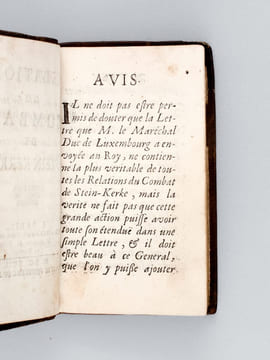 AVIS.
IL ne doit pas estre per-
mis de douter que la Let-
tre que M. le Maréchal
Duc de Luxembourg a en-
voyée au Roy, ne contien-
ne la plus veritable de tou-
tes les Relations du Combat
de Stein-Kerke, mais la
verité ne fait pas que cette
grande action puisse avoir
toute son étenduë dans une
simple Lettre, & il doit
estre beau à ce General,
que l'on y puisse ajouter